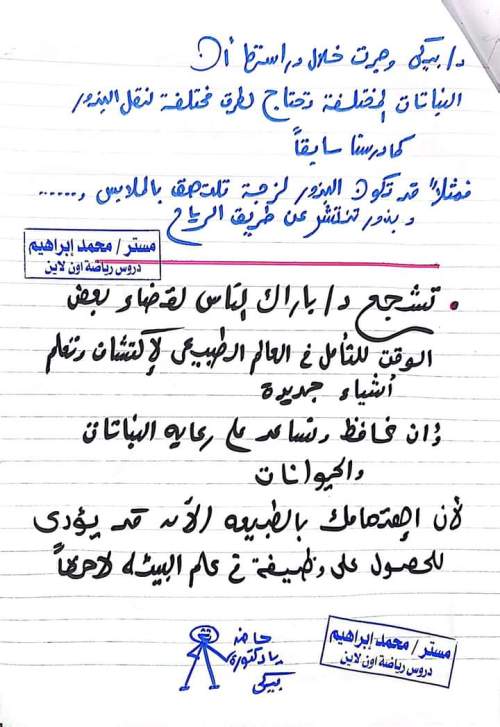 د/ بيكى وجدت خلال دراستها أن
النباتات المختلفة تحتاج لطرق مختلفة لنقل البذور
كما درسنا سابقاً
فمثلاً قد تكون البذور لزجة تلتصق بالملابس و......
وبذور تنتشر عن طريق الرياح
مستر / محمد إبراهيم
دروس رياضة اون لاين
• تشجع د/ باراك الناس لقضاء بعض
الوقت للتأمل في العالم الطبيعى لإكتشاف وتعلم
أشياء جديدة
وأن نحافظ ونساعد على رعاية النباتات
والحيوانات
لأن إهتمامك بالطبيعه الآن قد يؤدى
للحصول على وظيفة في علم البيئه لاحقاً
حاضر
يا دكتورة
بيكى
مستر / محمد إبراهيم
دروس رياضة اون لاين